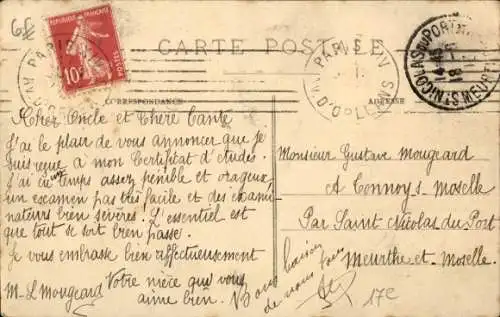 65
RÉPUBLIQUE FRANÇAISE
POSTES
10c
CARTE POSTALE
CORRESPONDANCE
ADRESSE
Cher Oncle et Chère Tante
J'ai le plaisir de vous annoncer que je
suis reçue a mon Certificat d'études.
J'ai eu un temps assez pénible et orageux
un examen pas très facile et des exami
nateurs bien sévères. L'essentiel est
que tout se soit bien passé.
Je vous embrasse bien affectueusement
Votre nièce qui vous
aime bien.
M-L Mougeard
Bons baisers
de nous
Monsieur Gustave Mougeard
A Connoys-Moselle
Par Saint Nicolas du Port
Meurthe-et-Moselle.
17e